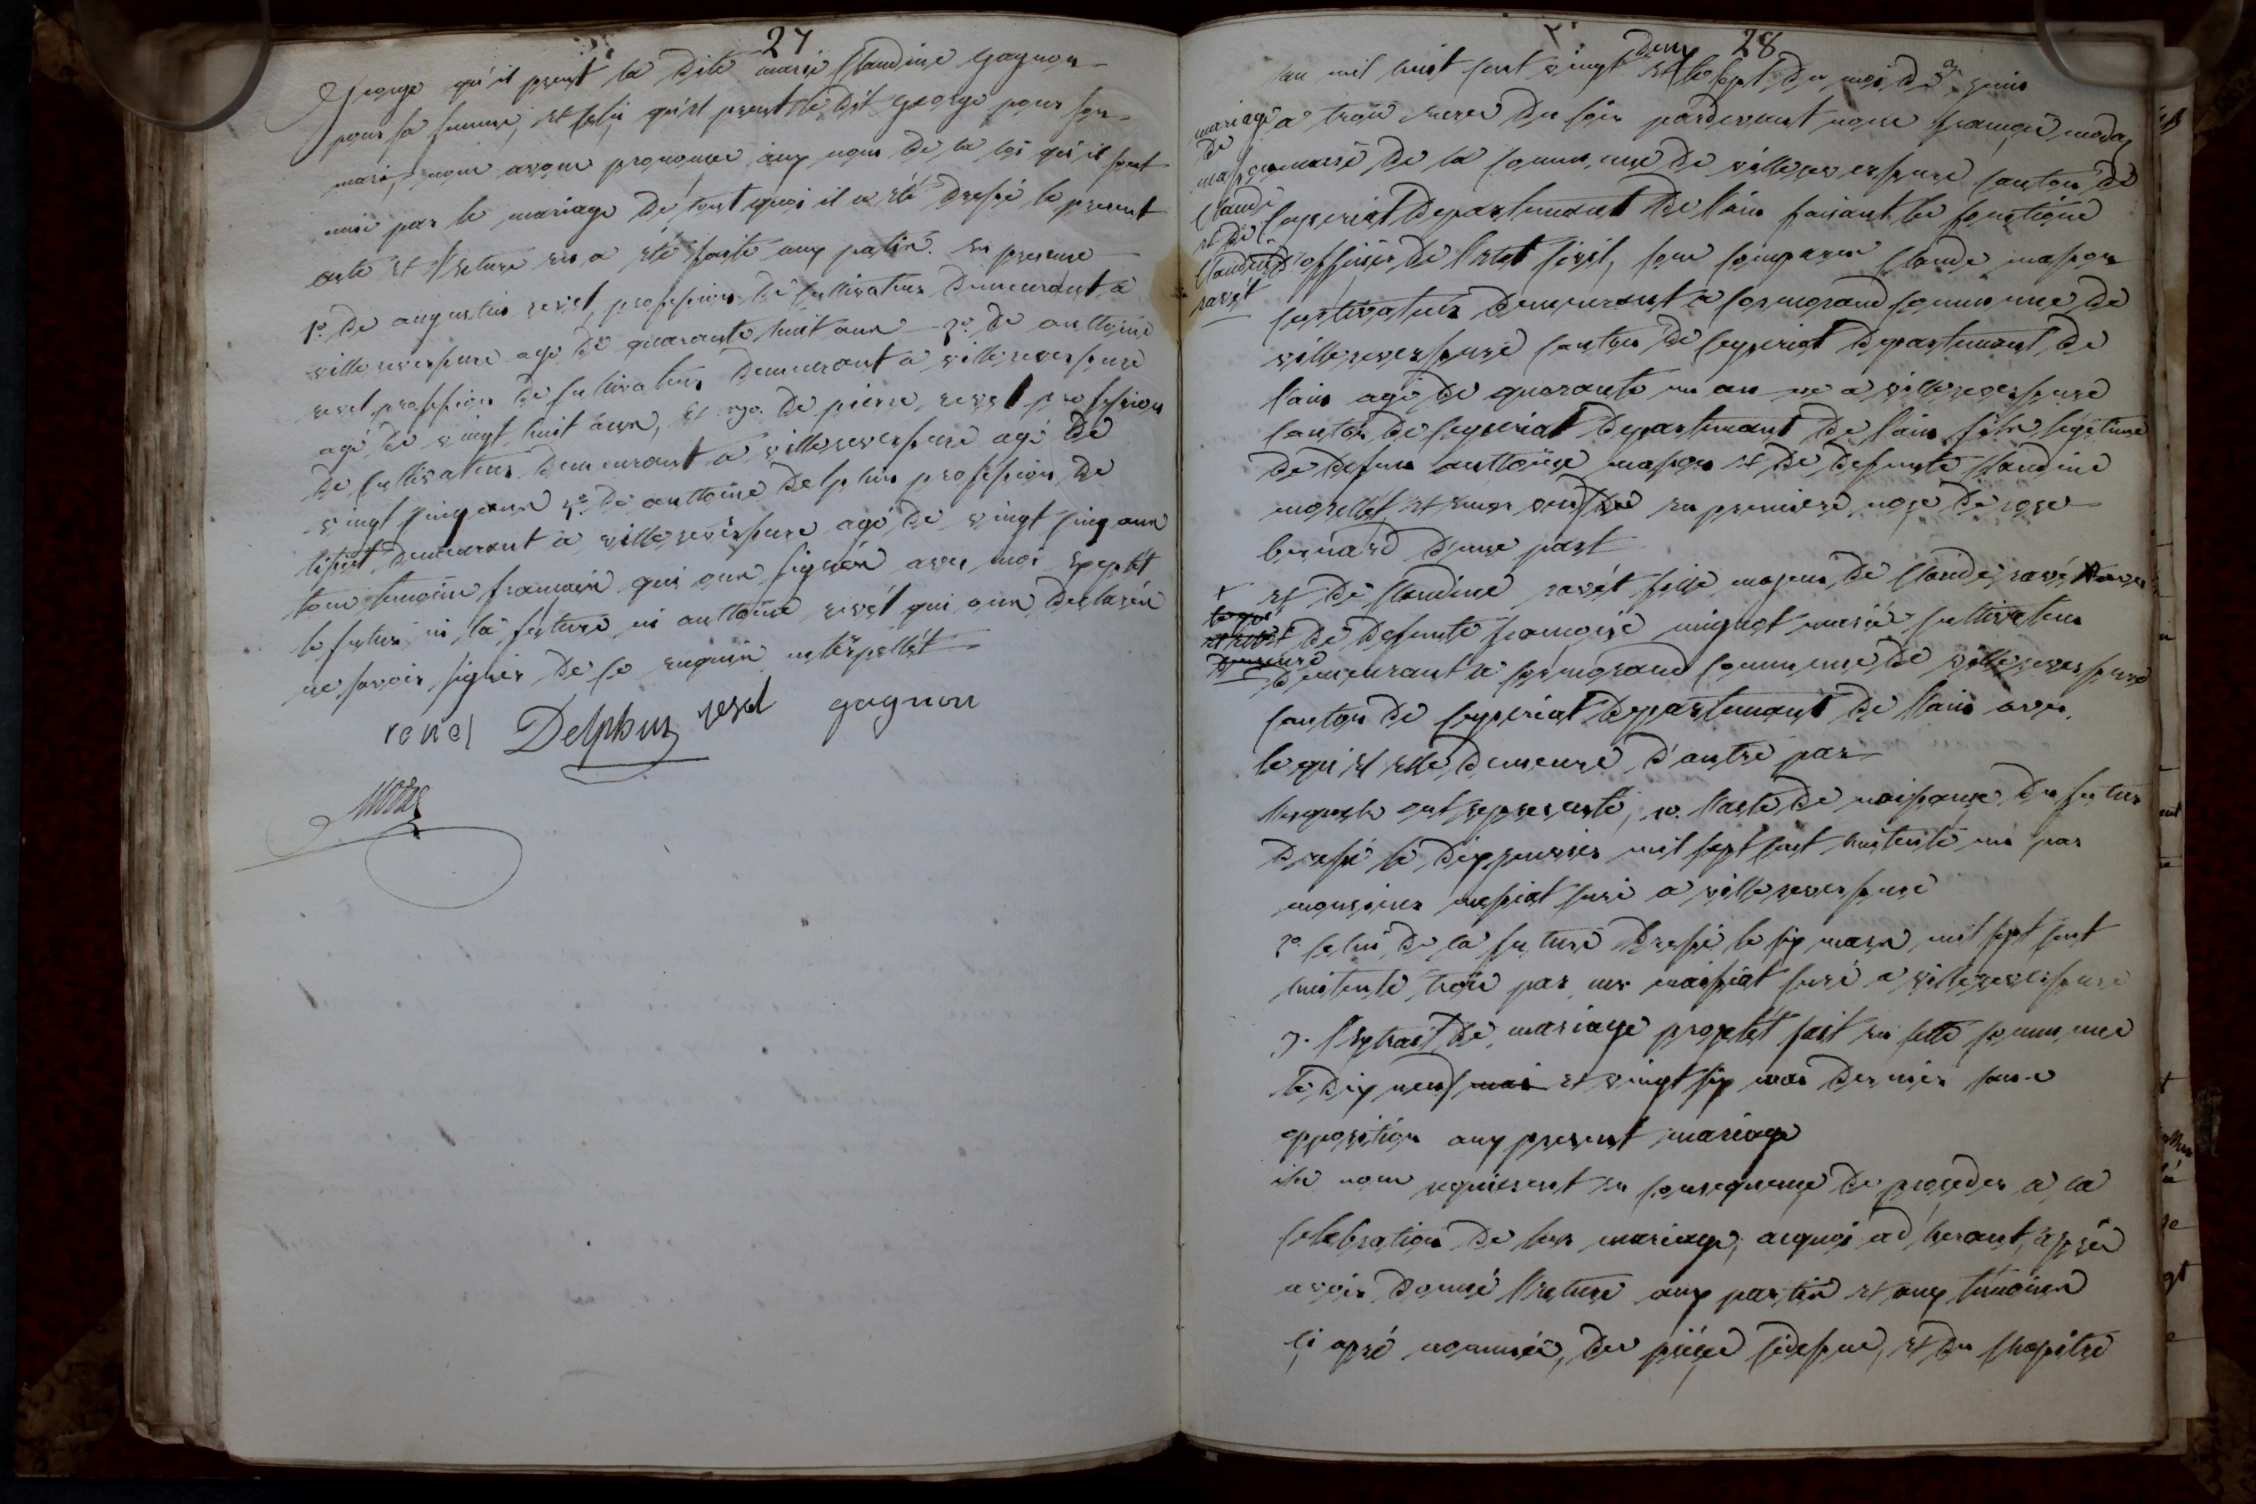 27
George qu'il prent la dite marie Claudine gagnon
pour sa femme, et celui qu'el prent le dit george pour son
mari, nous avons prononcé aux nom de la loi qu'il sont
unie par le mariage de tout quoi il a été dressé le present
acte et lecture en a été faite aux partie. en presence
1º. de augustin revel, profession de cultivateur demeurant a
villereversure agé de quarante huit ans 2º. de anttoine
revel profession de cultivateur demeurant a villereversure
agé de vingt huit ans, et 3º. de pierre revel profession
de cultivateur demeurant a villereversure agé de
vingt cinq ans 4º. de anttoine Delphin profession de
demeurant a villereversure agé de vingt cinq ans
tous temoins francais qui ons signés avec moi exepté
le futur ni la future ni anttoine revel qui ons declarés
ne savoir signer de ce enquis interpellét
revel Delphin revel gagnon
Moda
28
lan mil huit cent vingt deux et le sept du mois de juin
a trois heure du soir pardevant nous françois moda
maire de la commune de villereversure canton de
Ceyzeriat Departement de l'ain faisant les fonctions
d'officier de l'etat civil, sont comparus Claude masson
cultivateur demeurant a cormorand commune de
villereversure canton de ceyzeriat departement de
l'ain agé de quarante un an né a villereversure
canton de ceyzeriat departement de l'ain fils legitime
de defun anttoine masson et de defunte claudine
morellet et veuf en premiere noce de rose
bernard d'une part
et de claudine ravét fille majeur de Claude ravét
et de defunte françoise mignot marié cultivateur
demeurant a cormorand commune de villereversure
canton de ceyzeriat departement de l'ain avec
le qui el elle demeure d'autre par
lesquels ont representé, 1º. l'acte de naissance du futur
dressé le dix janvier mil sept cent huitente un par
monsieur messiat curé a villereversure
2º. celui de la future dressé le six mars mil sept cent
huitente trois par mr maissiat curé a villereversure
3º. l'extrait de mariage projetét fait en cette commune
le dix neuf mai et vingt six mai dernier sans
opposition aux present mariage
ils nous requierent en consequence de proceder a la
celebration de leur mariage, aquoi adherant, aprés
avoir donné lecture aux partie et aux temoins
ci apré nommés, des piéce cidessus, et du chapitre
mariage
de
masson
Claude
et de
Claudine
ravét